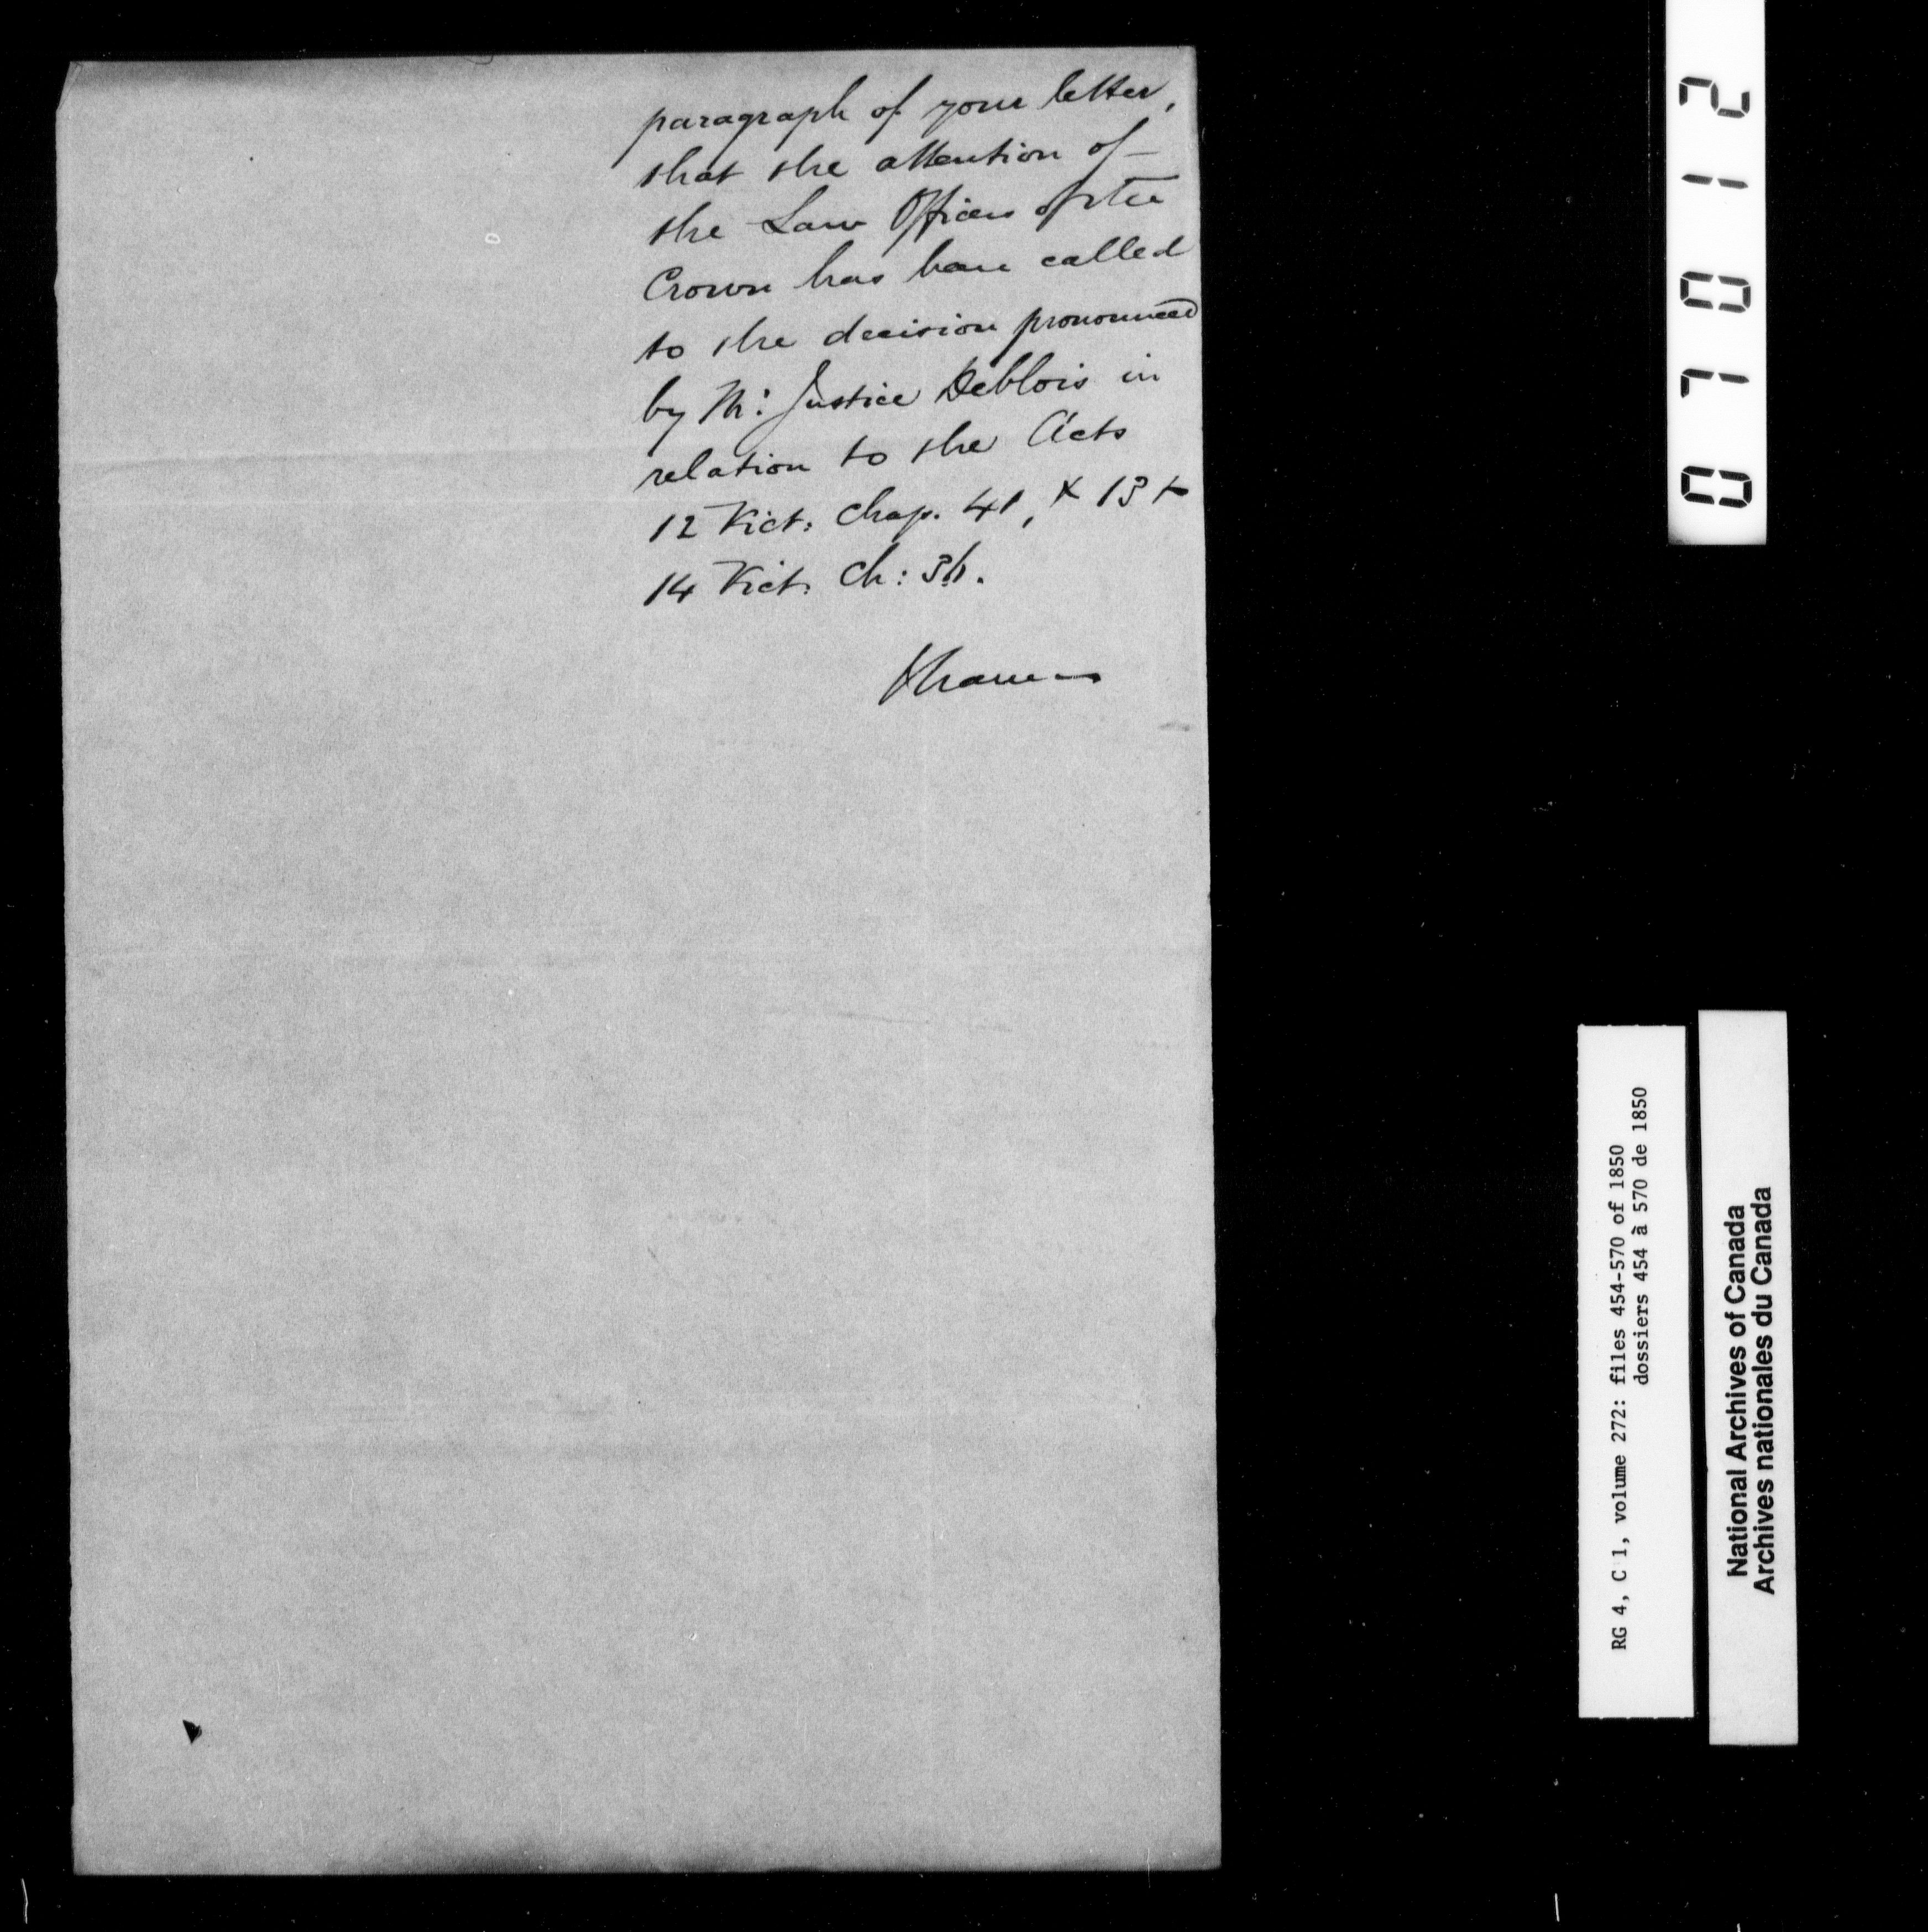 paragraph of your letter,
that the attention of
the Law Officers of the
Crown has been called
to the decision pronounced
by Mr. Justice Deblois in
relation to the Acts
12 Vict: Chap. 41, & 13 &
14 Vict: Ch: 36.
07012
RG 4, C 1, volume 272: files 454-570 of 1850
dossiers 454 à 570 de 1850
National Archives of Canada
Archives nationales du Canada